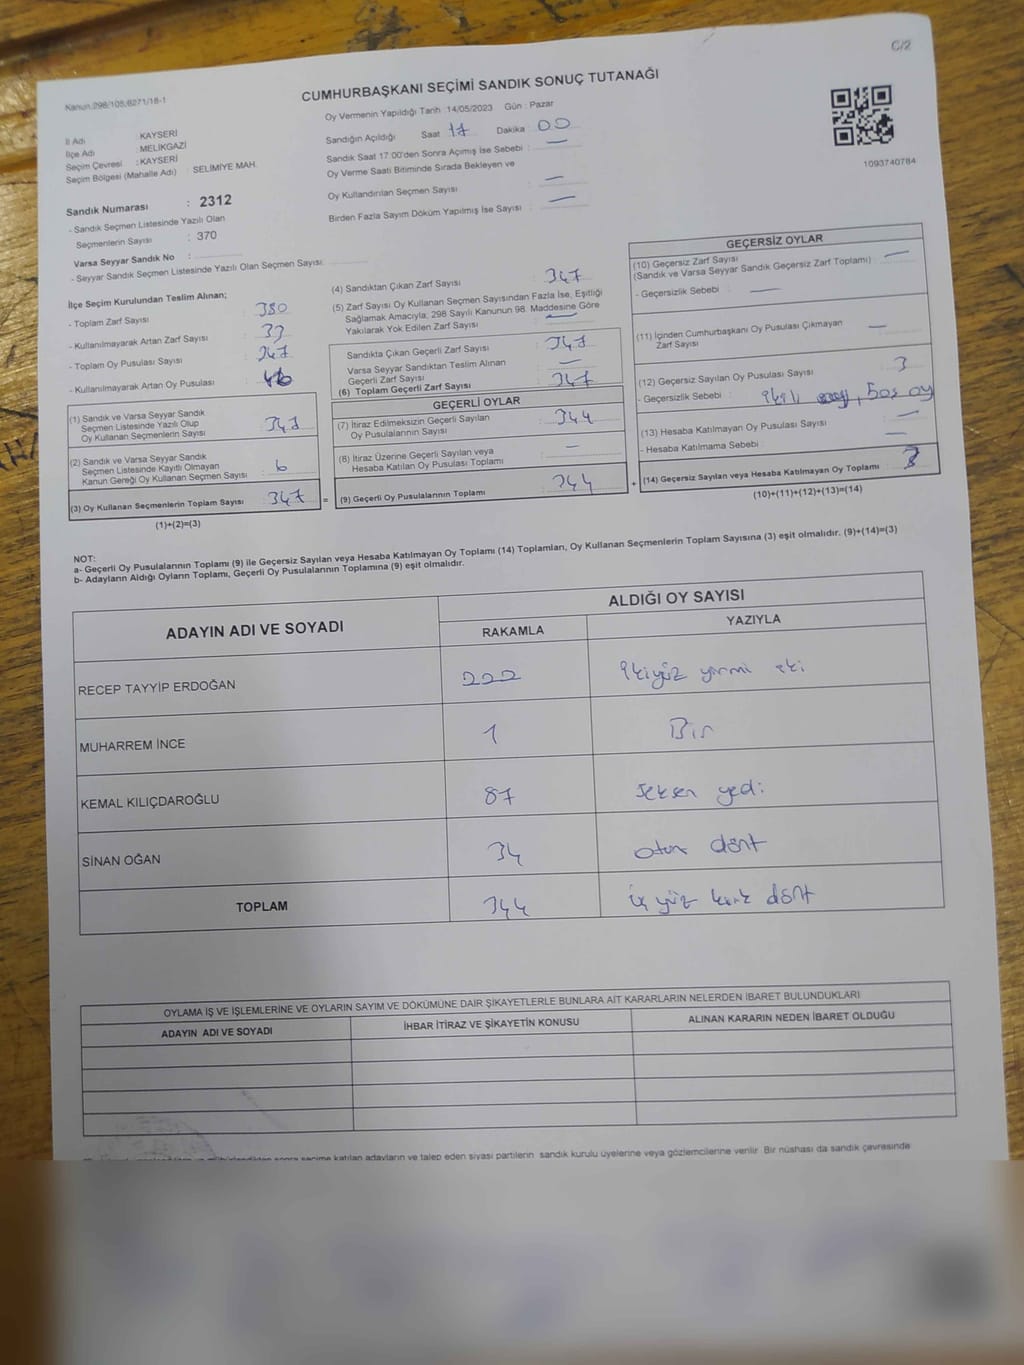 C/2
Kanun:298/105,6271/18-1
CUMHURBAŞKANI SEÇİMİ SANDIK SONUÇ TUTANAĞI
Oy Vermenin Yapıldığı Tarih :14/05/2023 Gün : Pazar
İl Adı : KAYSERİ
İlçe Adı : MELİKGAZİ
Seçim Çevresi : KAYSERİ
Seçim Bölgesi (Mahalle Adı) : SELİMİYE MAH.
Sandığın Açıldığı Saat 17 Dakika 00
Sandık Saat 17:00'den Sonra Açımış İse Sebebi : —
Oy Verme Saati Bitiminde Sırada Bekleyen ve
Oy Kullandırılan Seçmen Sayısı —
Birden Fazla Sayım Döküm Yapılmış İse Sayısı : —
1093740784
Sandık Numarası : 2312
- Sandık Seçmen Listesinde Yazılı Olan
Seçmenlerin Sayısı : 370
Varsa Seyyar Sandık No :
- Seyyar Sandık Seçmen Listesinde Yazılı Olan Seçmen Sayısı:
İlçe Seçim Kurulundan Teslim Alınan;
- Toplam Zarf Sayısı : 380
- Kullanılmayarak Artan Zarf Sayısı :
- Toplam Oy Pusulası Sayısı :
- Kullanılmayarak Artan Oy Pusulası :
(1) Sandık ve Varsa Seyyar Sandık
Seçmen Listesinde Yazılı Olup
Oy Kullanan Seçmenlerin Sayısı :
(2) Sandık ve Varsa Seyyar Sandık
Seçmen Listesinde Kayıtlı Olmayan
Kanun Gereği Oy Kullanan Seçmen Sayısı :
(3) Oy Kullanan Seçmenlerin Toplam Sayısı 347 =
(1)+(2)=(3)
(4) Sandıktan Çıkan Zarf Sayısı : 347
(5) Zarf Sayısı Oy Kullanan Seçmen Sayısından Fazla İse, Eşitliği
Sağlamak Amacıyla, 298 Sayılı Kanunun 98. Maddesine Göre
Yakılarak Yok Edilen Zarf Sayısı : —
Sandıkta Çıkan Geçerli Zarf Sayısı : 347
Varsa Seyyar Sandıktan Teslim Alınan
Geçerli Zarf Sayısı : —
(6) Toplam Geçerli Zarf Sayısı : 347
GEÇERLİ OYLAR
(7) İtiraz Edilmeksizin Geçerli Sayılan
Oy Pusulalarının Sayısı : 344
(8) İtiraz Üzerine Geçerli Sayılan veya
Hesaba Katılan Oy Pusulası Toplamı : —
(9) Geçerli Oy Pusulalarının Toplamı : 344 +
GEÇERSİZ OYLAR
(10) Geçersiz Zarf Sayısı
(Sandık ve Varsa Seyyar Sandık Geçersiz Zarf Toplamı) : —
- Geçersizlik Sebebi : —
(11) İçinden Cumhurbaşkanı Oy Pusulası Çıkmayan
Zarf Sayısı : —
(12) Geçersiz Sayılan Oy Pusulası Sayısı : 3
- Geçersizlik Sebebi : boş oy
(13) Hesaba Katılmayan Oy Pusulası Sayısı : —
- Hesaba Katılmama Sebebi : —
(14) Geçersiz Sayılan veya Hesaba Katılmayan Oy Toplamı : 3
(10)+(11)+(12)+(13)=(14)
NOT:
a- Geçerli Oy Pusulalarının Toplamı (9) ile Geçersiz Sayılan veya Hesaba Katılmayan Oy Toplamı (14) Toplamları, Oy Kullanan Seçmenlerin Toplam Sayısına (3) eşit olmalıdır. (9)+(14)=(3)
b- Adayların Aldığı Oyların Toplamı, Geçerli Oy Pusulalarının Toplamına (9) eşit olmalıdır.
ADAYIN ADI VE SOYADI ALDIĞI OY SAYISI
RAKAMLA YAZIYLA
RECEP TAYYİP ERDOĞAN 222 ikiyüz yirmi iki
MUHARREM İNCE 1 Bir
KEMAL KILIÇDAROĞLU 87 seksen yedi
SİNAN OĞAN 34 otuz dört
TOPLAM 344 üç yüz kırk dört
OYLAMA İŞ VE İŞLEMLERİNE VE OYLARIN SAYIM VE DÖKÜMÜNE DAİR ŞİKAYETLERLE BUNLARA AİT KARARLARIN NELERDEN İBARET BULUNDUKLARI
ADAYIN ADI VE SOYADI İHBAR İTİRAZ VE ŞİKAYETİN KONUSU ALINAN KARARIN NEDEN İBARET OLDUĞU
sonra seçime katılan adayların ve talep eden siyasi partilerin sandık kurulu üyelerine veya gözlemcilerine verilir. Bir nüshası da sandık çevresinde